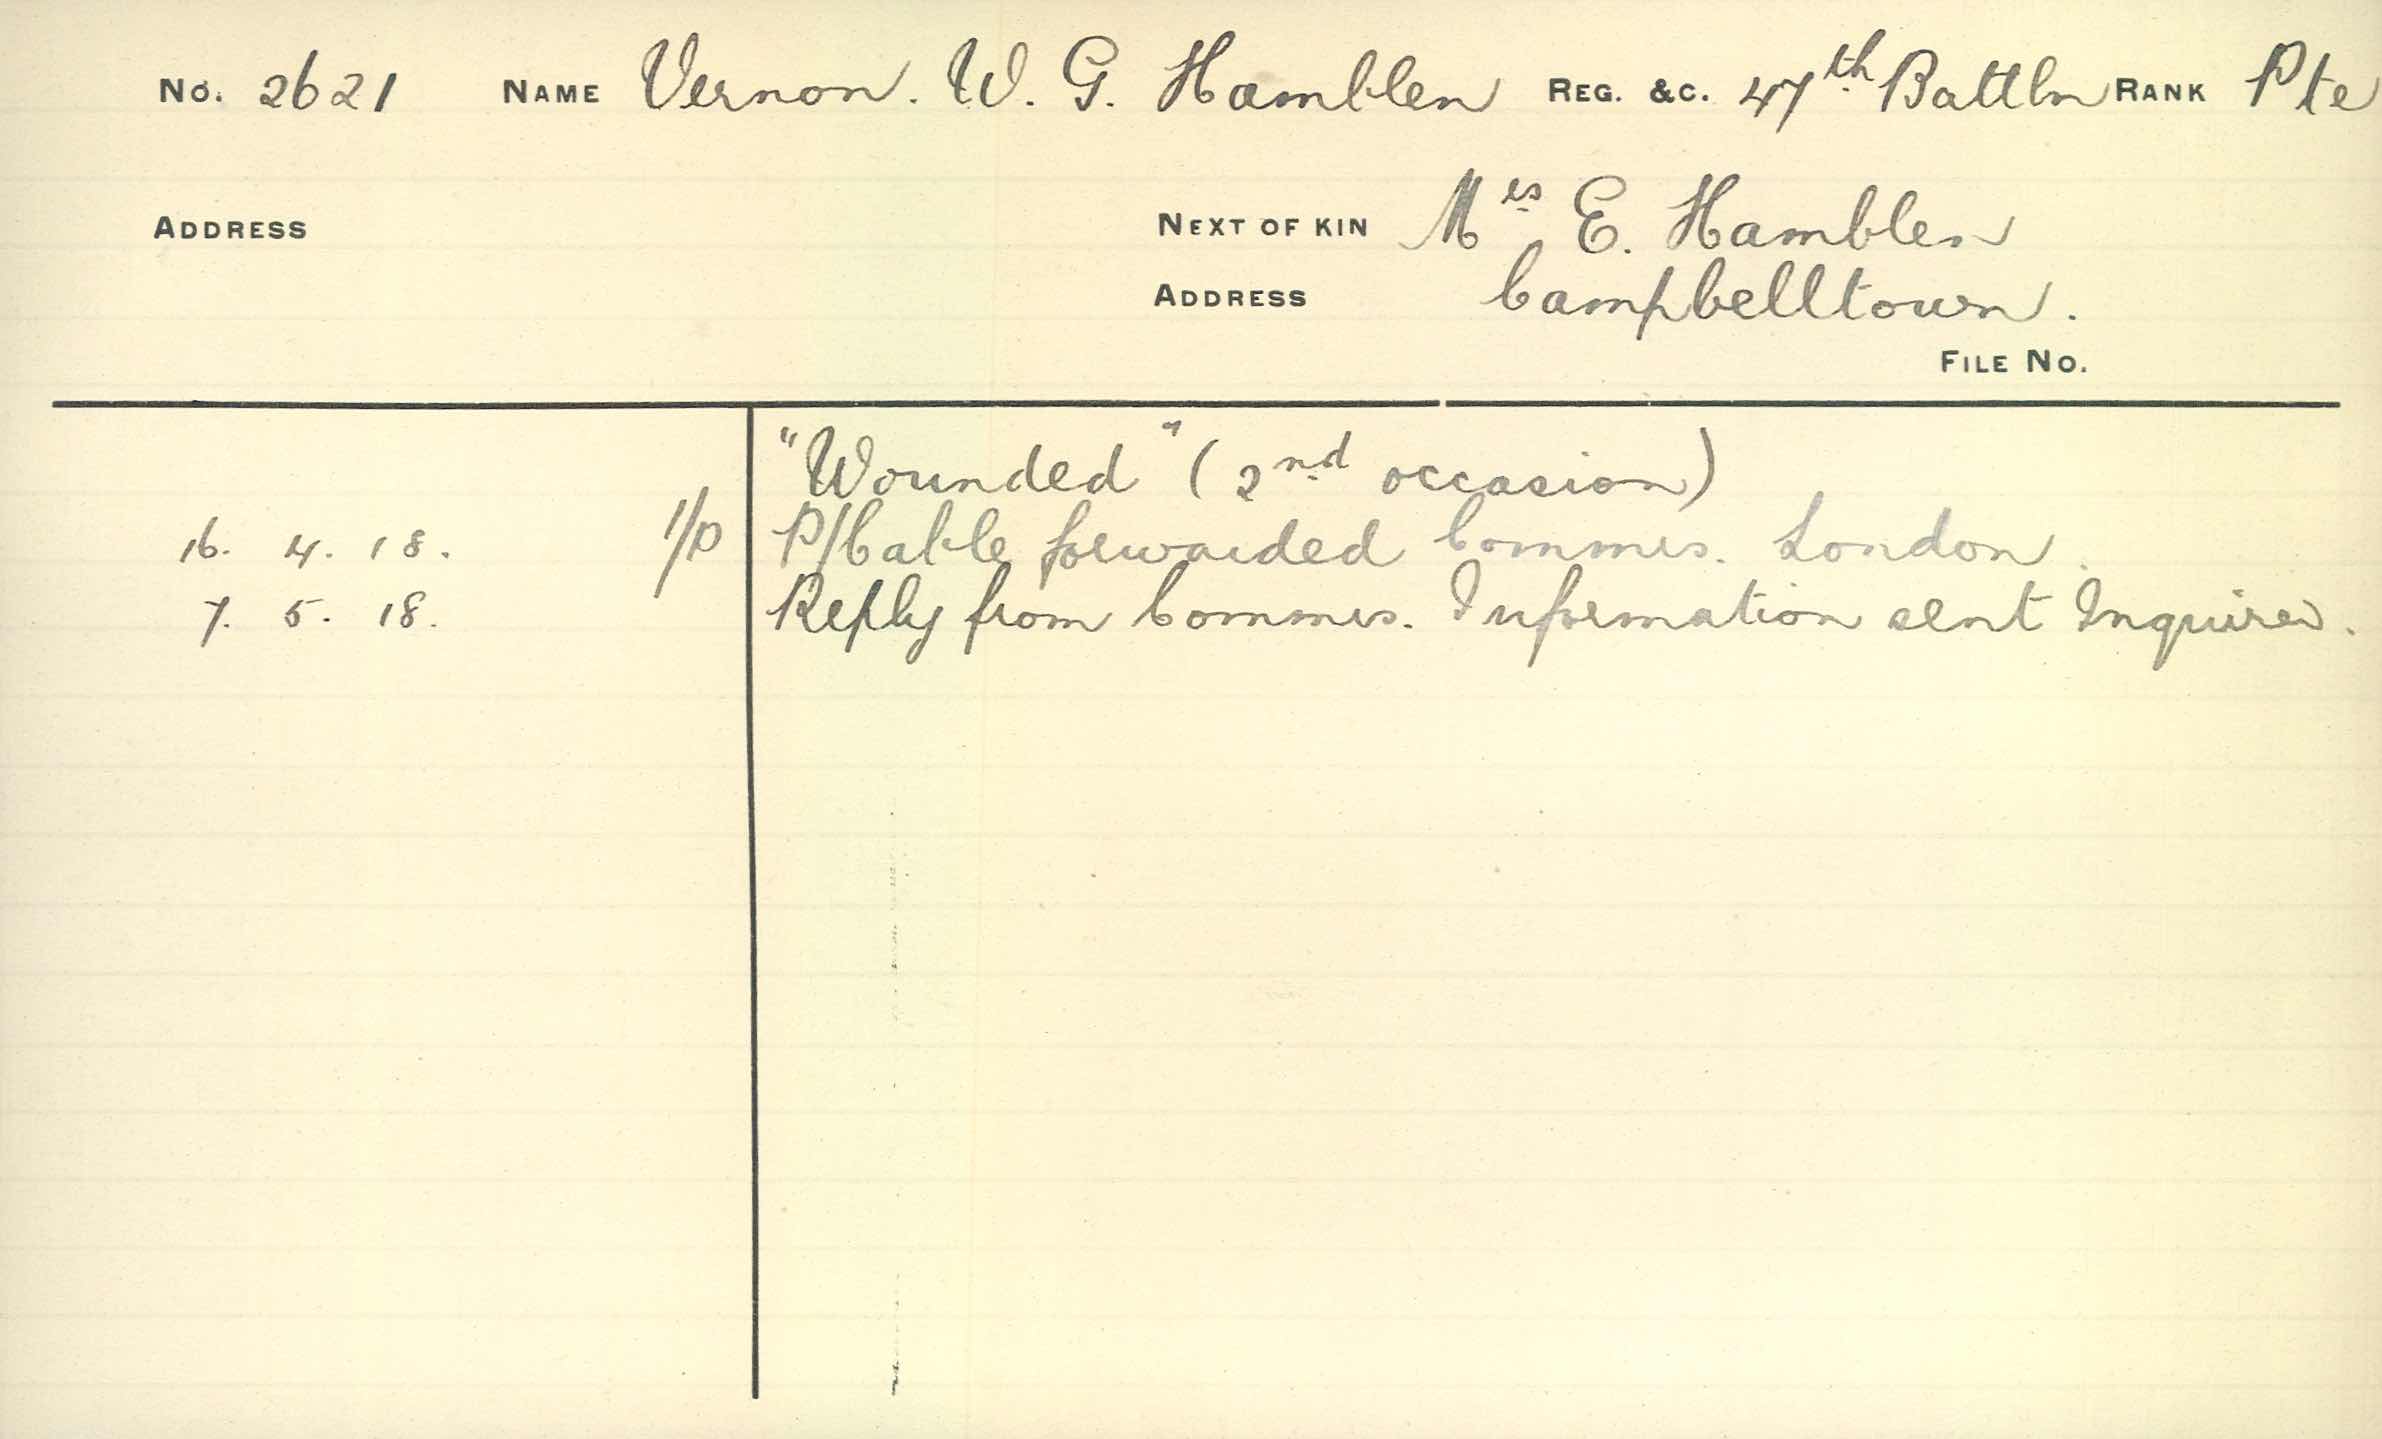 No. 2621 NAME Vernon. W. G. Hamblen REG. &C. 47th Battln RANK Pte
ADDRESS NEXT OF KIN Mrs E. Hamblen
ADDRESS Campbelltown.
FILE No.
"Wounded" (2nd occasion)
16. 4. 18. 1/P P/Cable forwarded Commrs. London.
7. 5. 18. Reply from Commrs. Information sent Inquirer.